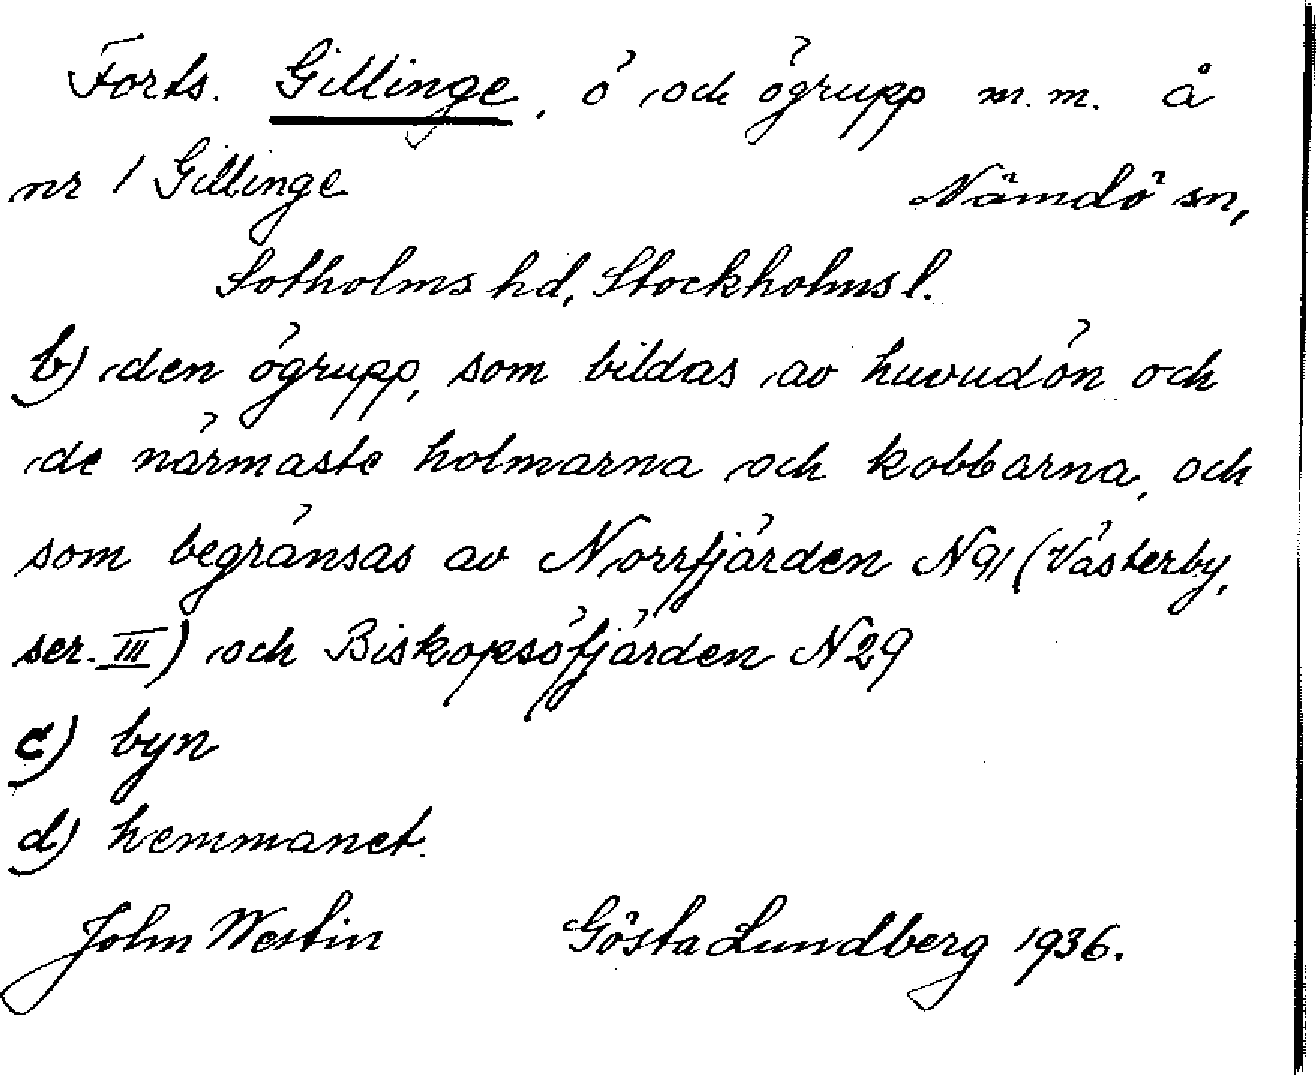 Forts. Gillinge, ö och ögrupp m.m. å
nr 1 Gillinge Nämdö sn,
Sotholms hd, Stockholms l.
b) den ögrupp, som bildas av huvudön och
de närmaste holmarna och kobbarna, och
som begränsas av Norrfjärden N91 (Västerby,
ser. III) och Biskopsöfjärden N29
c) byn
d) hemmanet.
John Westin Gösta Lundberg 1936.